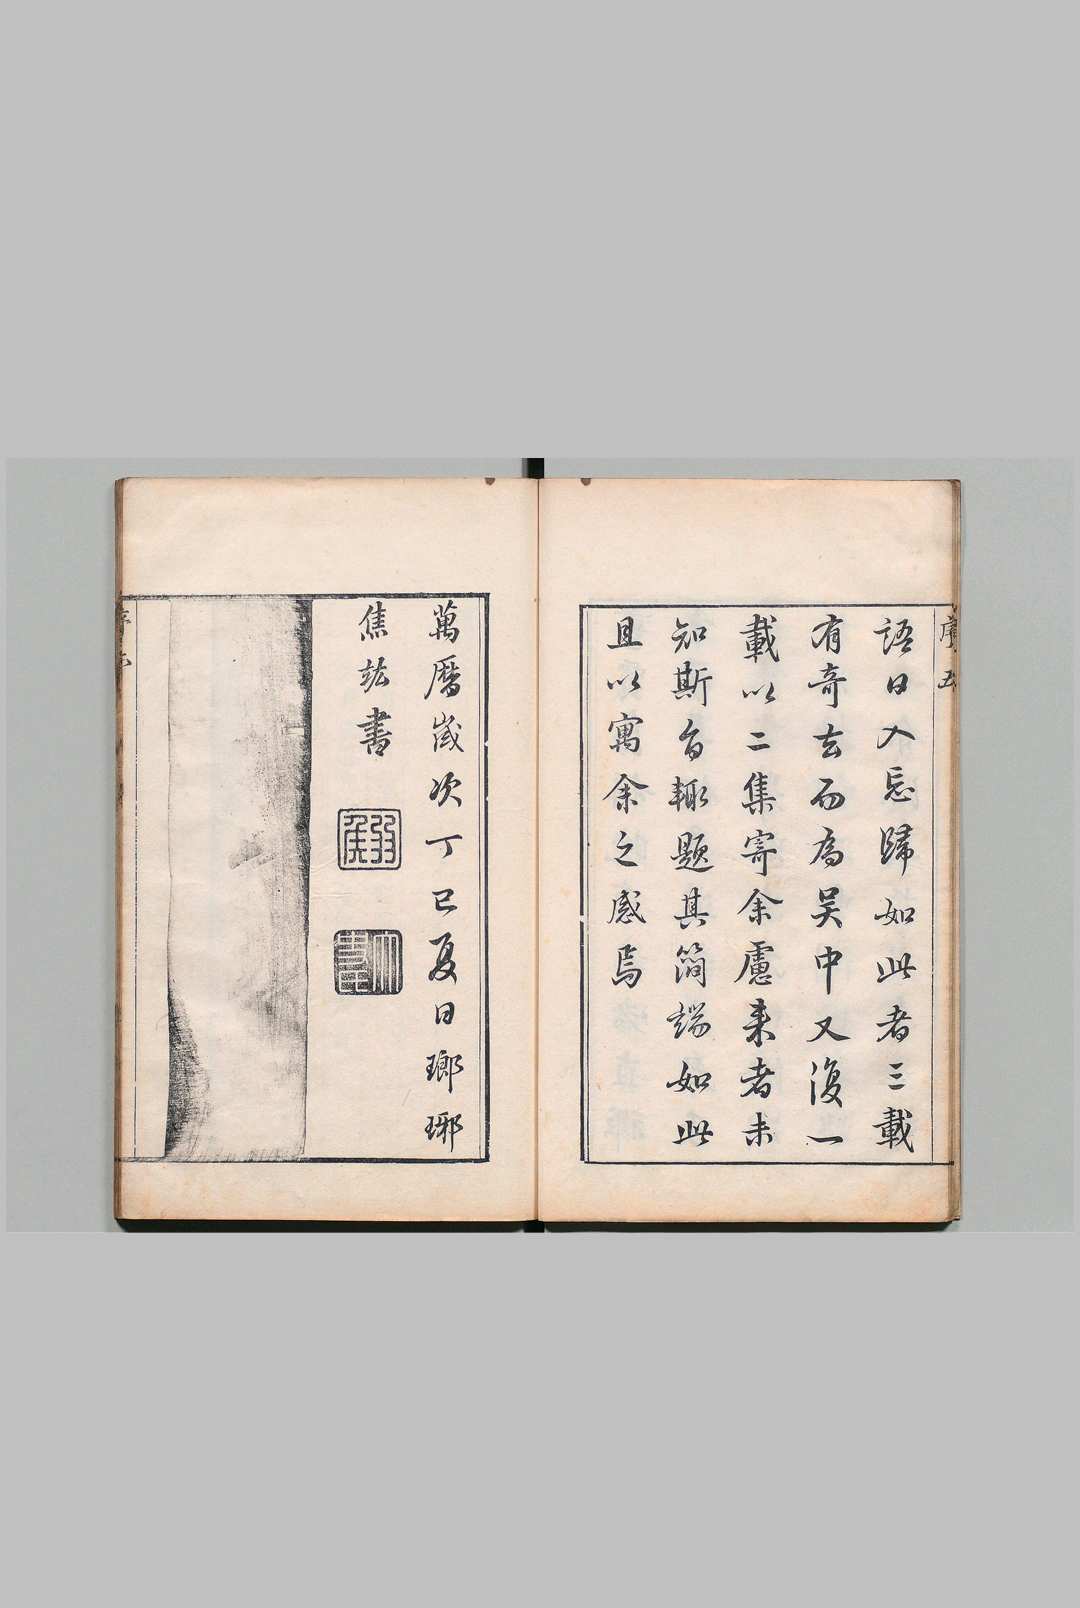 序 五
語日入忘歸如此者三載
有奇去而為吴中又復一
載以二集寄余慮来者未
知斯旨輙題其簡端如此
且以寓余之感焉
萬曆歲次丁巳夏日瑯琊
焦竑書
弱侯
太史